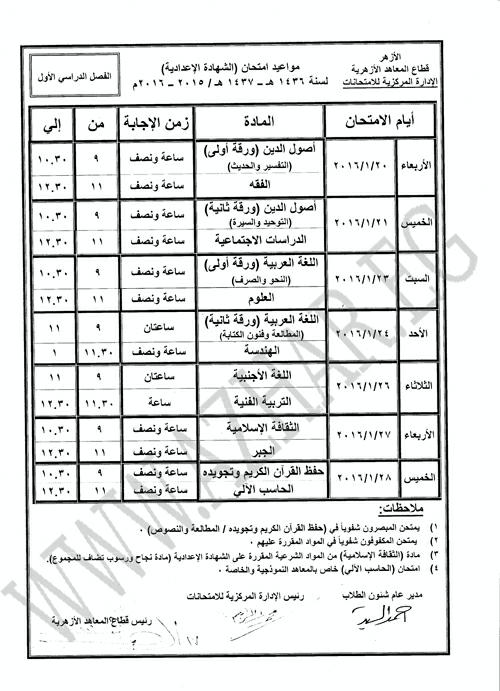 الأزهر
قطاع المعاهد الأزهرية
الإدارة المركزية للامتحانات
مواعيد امتحان (الشهادة الإعدادية)
لسنة ١٤٣٦ هـ - ١٤٣٧ هـ / ٢٠١٥ - ٢٠١٦م
الفصل الدراسي الأول
أيام الامتحان المادة زمن الإجابة من إلي
الأربعاء ٢٠١٦/١/٢٠ أصول الدين (ورقة أولى) ساعة ونصف ٩ ١٠.٣٠
(التفسير والحديث)
الفقه ساعة ونصف ١١ ١٢.٣٠
الخميس ٢٠١٦/١/٢١ أصول الدين (ورقة ثانية) ساعة ونصف ٩ ١٠.٣٠
(التوحيد والسيرة)
الدراسات الاجتماعية ساعة ونصف ١١ ١٢.٣٠
السبت ٢٠١٦/١/٢٣ اللغة العربية (ورقة أولى) ساعة ونصف ٩ ١٠.٣٠
(النحو والصرف)
العلوم ساعة ونصف ١١ ١٢.٣٠
الأحد ٢٠١٦/١/٢٤ اللغة العربية (ورقة ثانية) ساعتان ٩ ١١
(المطالعة وفنون الكتابة)
الهندسة ساعة ونصف ١١.٣٠ ١
الثلاثاء ٢٠١٦/١/٢٦ اللغة الأجنبية ساعتان ٩ ١١
التربية الفنية ساعة ١١.٣٠ ١٢.٣٠
الأربعاء ٢٠١٦/١/٢٧ الثقافة الإسلامية ساعة ونصف ٩ ١٠.٣٠
الجبر ساعة ونصف ١١ ١٢.٣٠
الخميس ٢٠١٦/١/٢٨ حفظ القرآن الكريم وتجويده ساعة ونصف ٩ ١٠.٣٠
الحاسب الآلي ساعة ونصف ١١ ١٢.٣٠
ملاحظات:
١) يمتحن المبصرون شفوياً في (حفظ القرآن الكريم وتجويده / المطالعة والنصوص) .
٢) يمتحن المكفوفون شفوياً في المواد المقررة عليهم .
٣) مادة (الثقافة الإسلامية) من المواد الشرعية المقررة على الشهادة الإعدادية (مادة نجاح ورسوب تضاف للمجموع).
٤) امتحان (الحاسب الآلي) خاص بالمعاهد النموذجية والخاصة .
مدير عام شئون الطلاب
رئيس الإدارة المركزية للامتحانات
رئيس قطاع المعاهد الأزهرية
WWW.AZHAR.EG